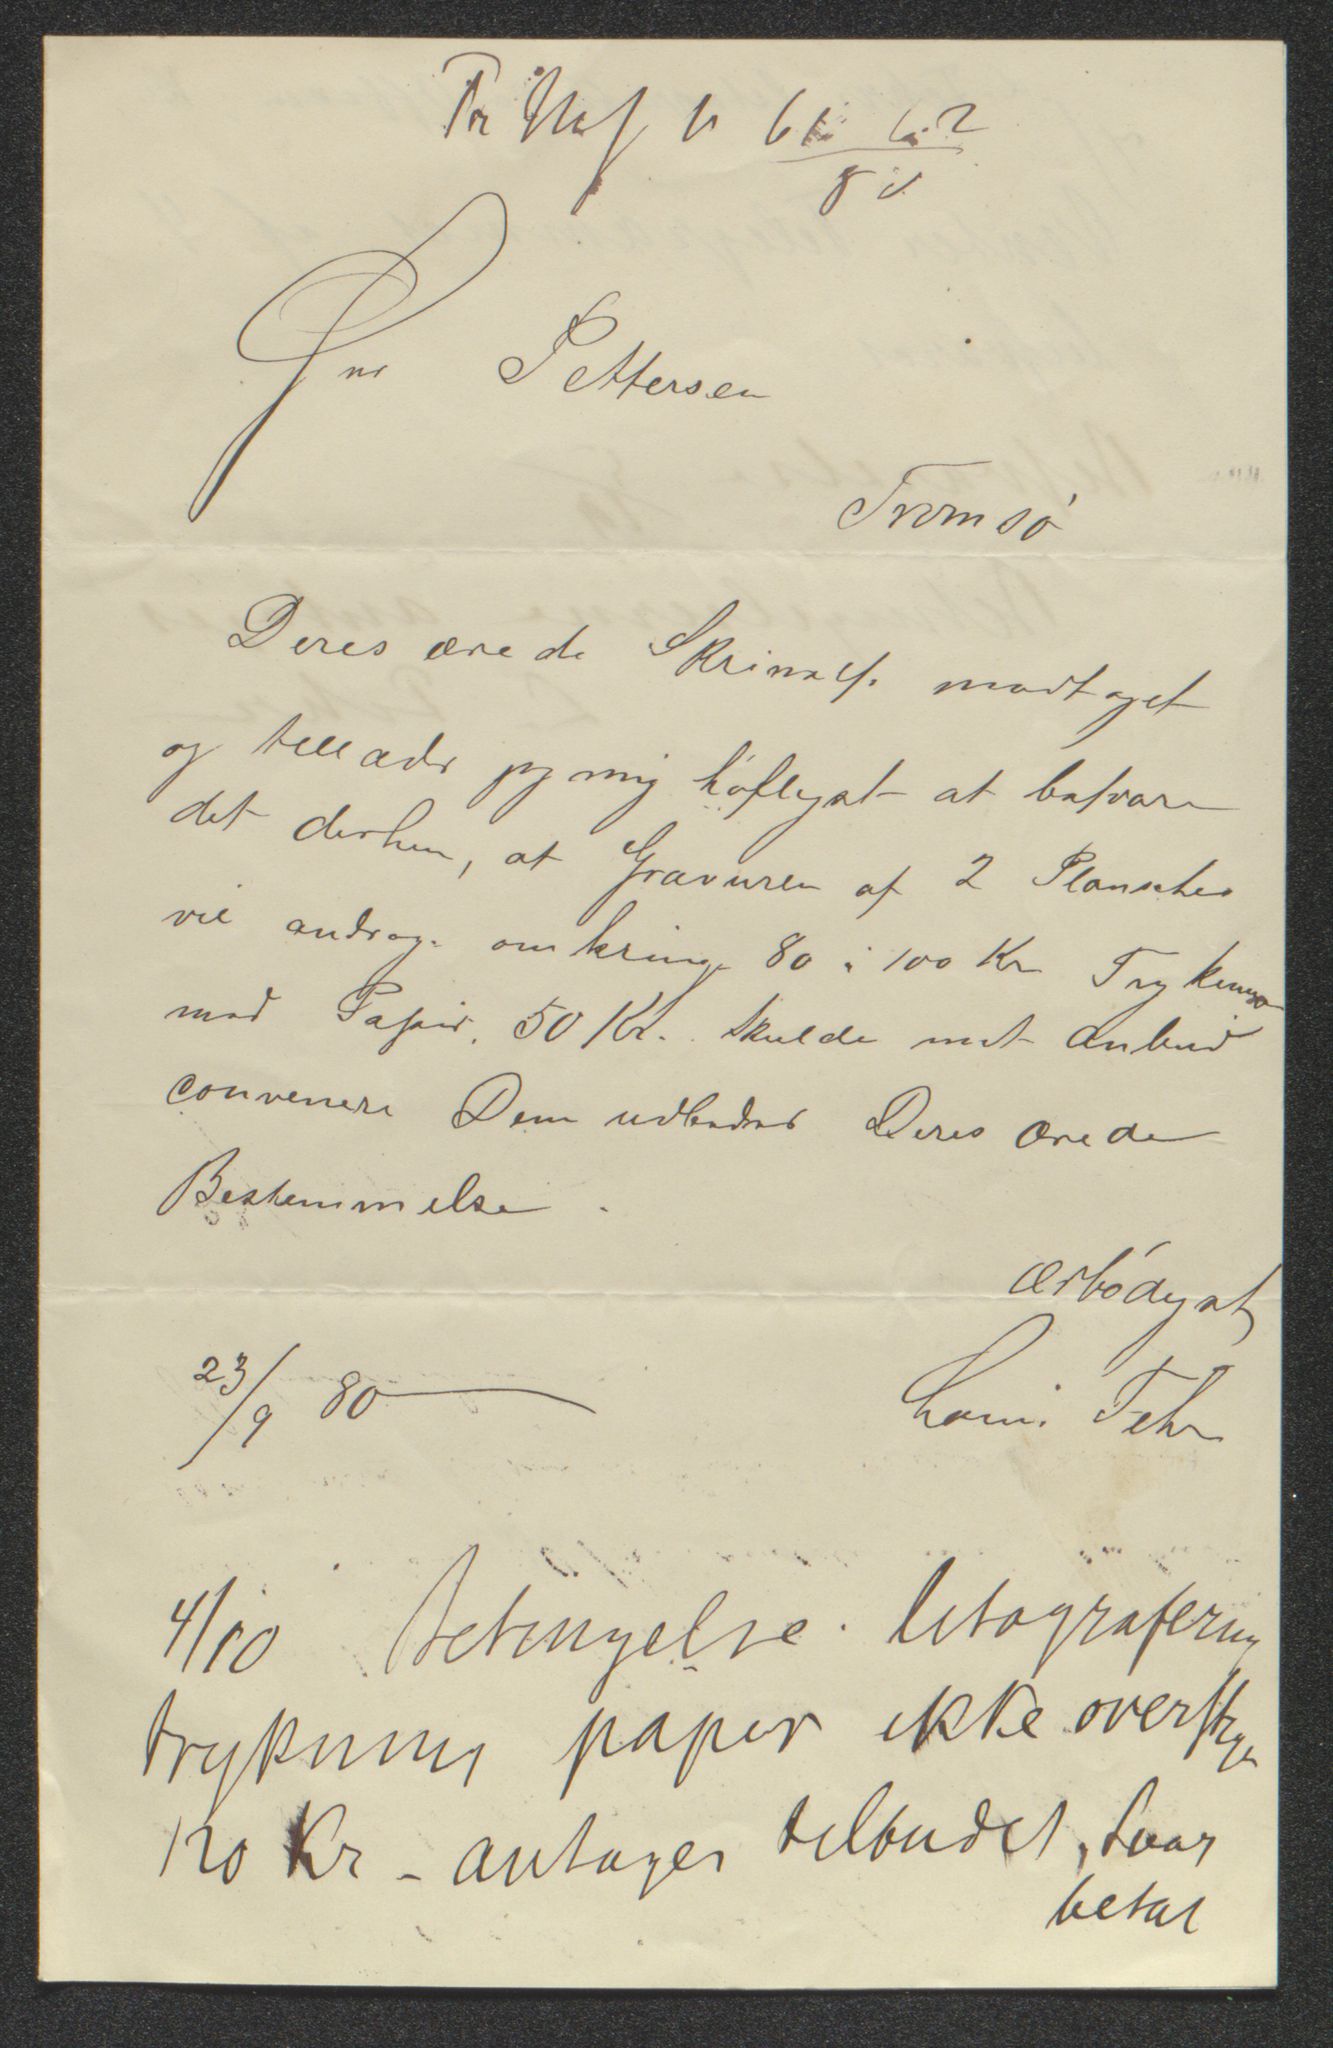 61 62
80
Hr Pettersen
Tromsö
Deres ærede Skrivelse modtaget
og tillader jeg mig höfligst at besvare
det derhen, at Gravuren af 2 Planscher
vil andrage omkring 80 à 100 Kr Trykning
med Papir. 50 Kr. Skulde mit Anbud
convenere Dem udbeder Deres ærede
Bestemmelse.
Ærbödigst
23/9 80
Louis Fehr
4/10 Betingelse. litografering
trykning papir ikke overstige
120 Kr - antages tilbudet, Svar
betal